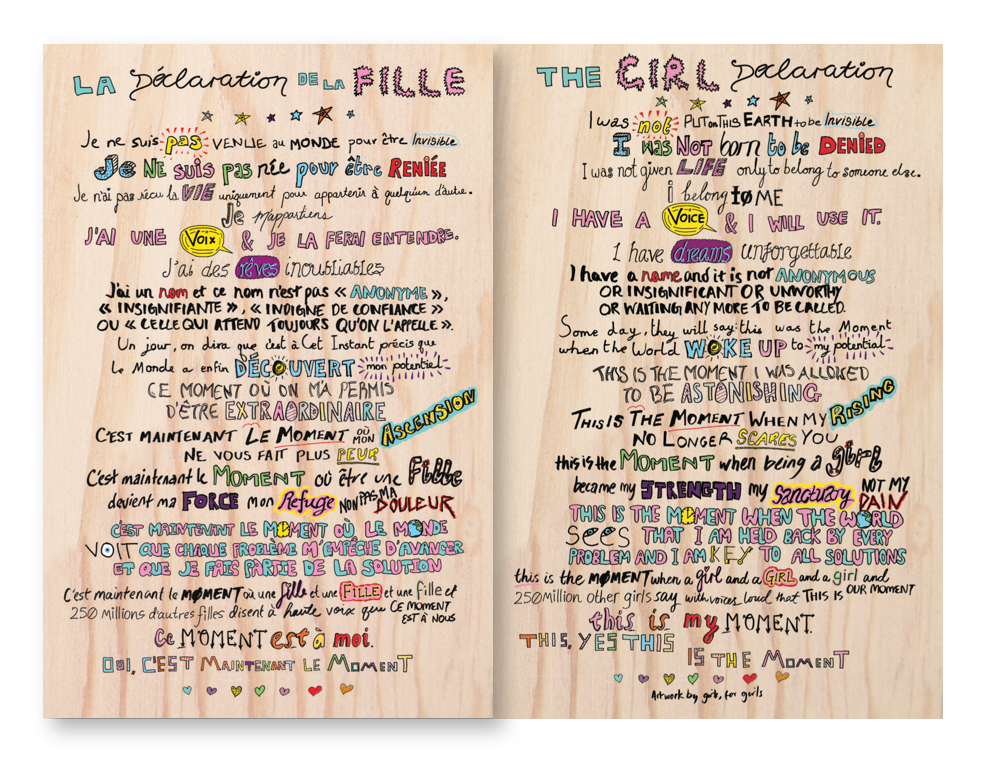 LA Déclaration DE LA FILLE
Je ne suis pas VENUE au MONDE pour être Invisible
Je NE suis pas née pour être RENIÉE
Je n'ai pas reçu la VIE uniquement pour appartenir à quelqu'un d'autre.
Je m'appartiens
J'AI UNE Voix & JE LA FERAI ENTENDRE.
J'ai des rêves inoubliables
J'ai un nom et ce nom n'est pas « ANONYME »,
« INSIGNIFIANTE », « INDIGNE DE CONFIANCE »
OU « CELLE QUI ATTEND TOUJOURS QU'ON L'APPELLE ».
Un jour, on dira que c'est à Cet Instant précis que
Le Monde a enfin DÉCOUVERT mon potentiel
CE MOMENT OÙ ON M'A PERMIS
D'ÊTRE EXTRAORDINAIRE
C'EST MAINTENANT LE MOMENT OÙ MON ASCENSION
NE VOUS FAIT PLUS PEUR
C'est maintenant le MOMENT où être une Fille
devient ma FORCE mon Refuge NON PAS MA DOULEUR
C'EST MAINTENANT LE MOMENT OÙ LE MONDE
VOIT QUE CHAQUE PROBLÈME M'EMPÊCHE D'AVANCER
ET QUE JE FAIS PARTIE DE LA SOLUTION
C'est maintenant le MOMENT où une fille et une FILLE et une fille et
250 Millions d'autres filles disent à haute voix que CE MOMENT
EST À NOUS
Ce MOMENT est à moi.
OUI, C'EST MAINTENANT LE MOMENT
THE GIRL Declaration
I was not PUT on THIS EARTH to be Invisible
I was NOT born to be DENIED
I was not given LIFE only to belong to someone else.
i belong to ME
I HAVE A VOICE & I WILL USE IT.
I have dreams unforgettable
I have a name and it is not ANONYMOUS
OR INSIGNIFICANT OR UNWORTHY
OR WAITING ANY MORE TO BE CALLED.
Some day, they will say: this was the Moment
when the World WOKE UP to my potential
THIS IS THE MOMENT I WAS ALLOWED
TO BE ASTONISHING
THIS IS THE MOMENT WHEN MY RISING
NO LONGER SCARES YOU
this is the MOMENT when being a girl
became my STRENGTH my Sanctuary NOT MY PAIN
THIS IS THE MOMENT WHEN THE WORLD
SEES THAT I AM HELD BACK BY EVERY
PROBLEM AND I AM KEY TO ALL SOLUTIONS
this is the MOMENT when a girl and a GIRL and a girl and
250 Million other girls say with voices loud that THIS IS OUR MOMENT
this is my MOMENT.
THIS, YES THIS
IS THE MOMENT
Artwork by girls, for girls